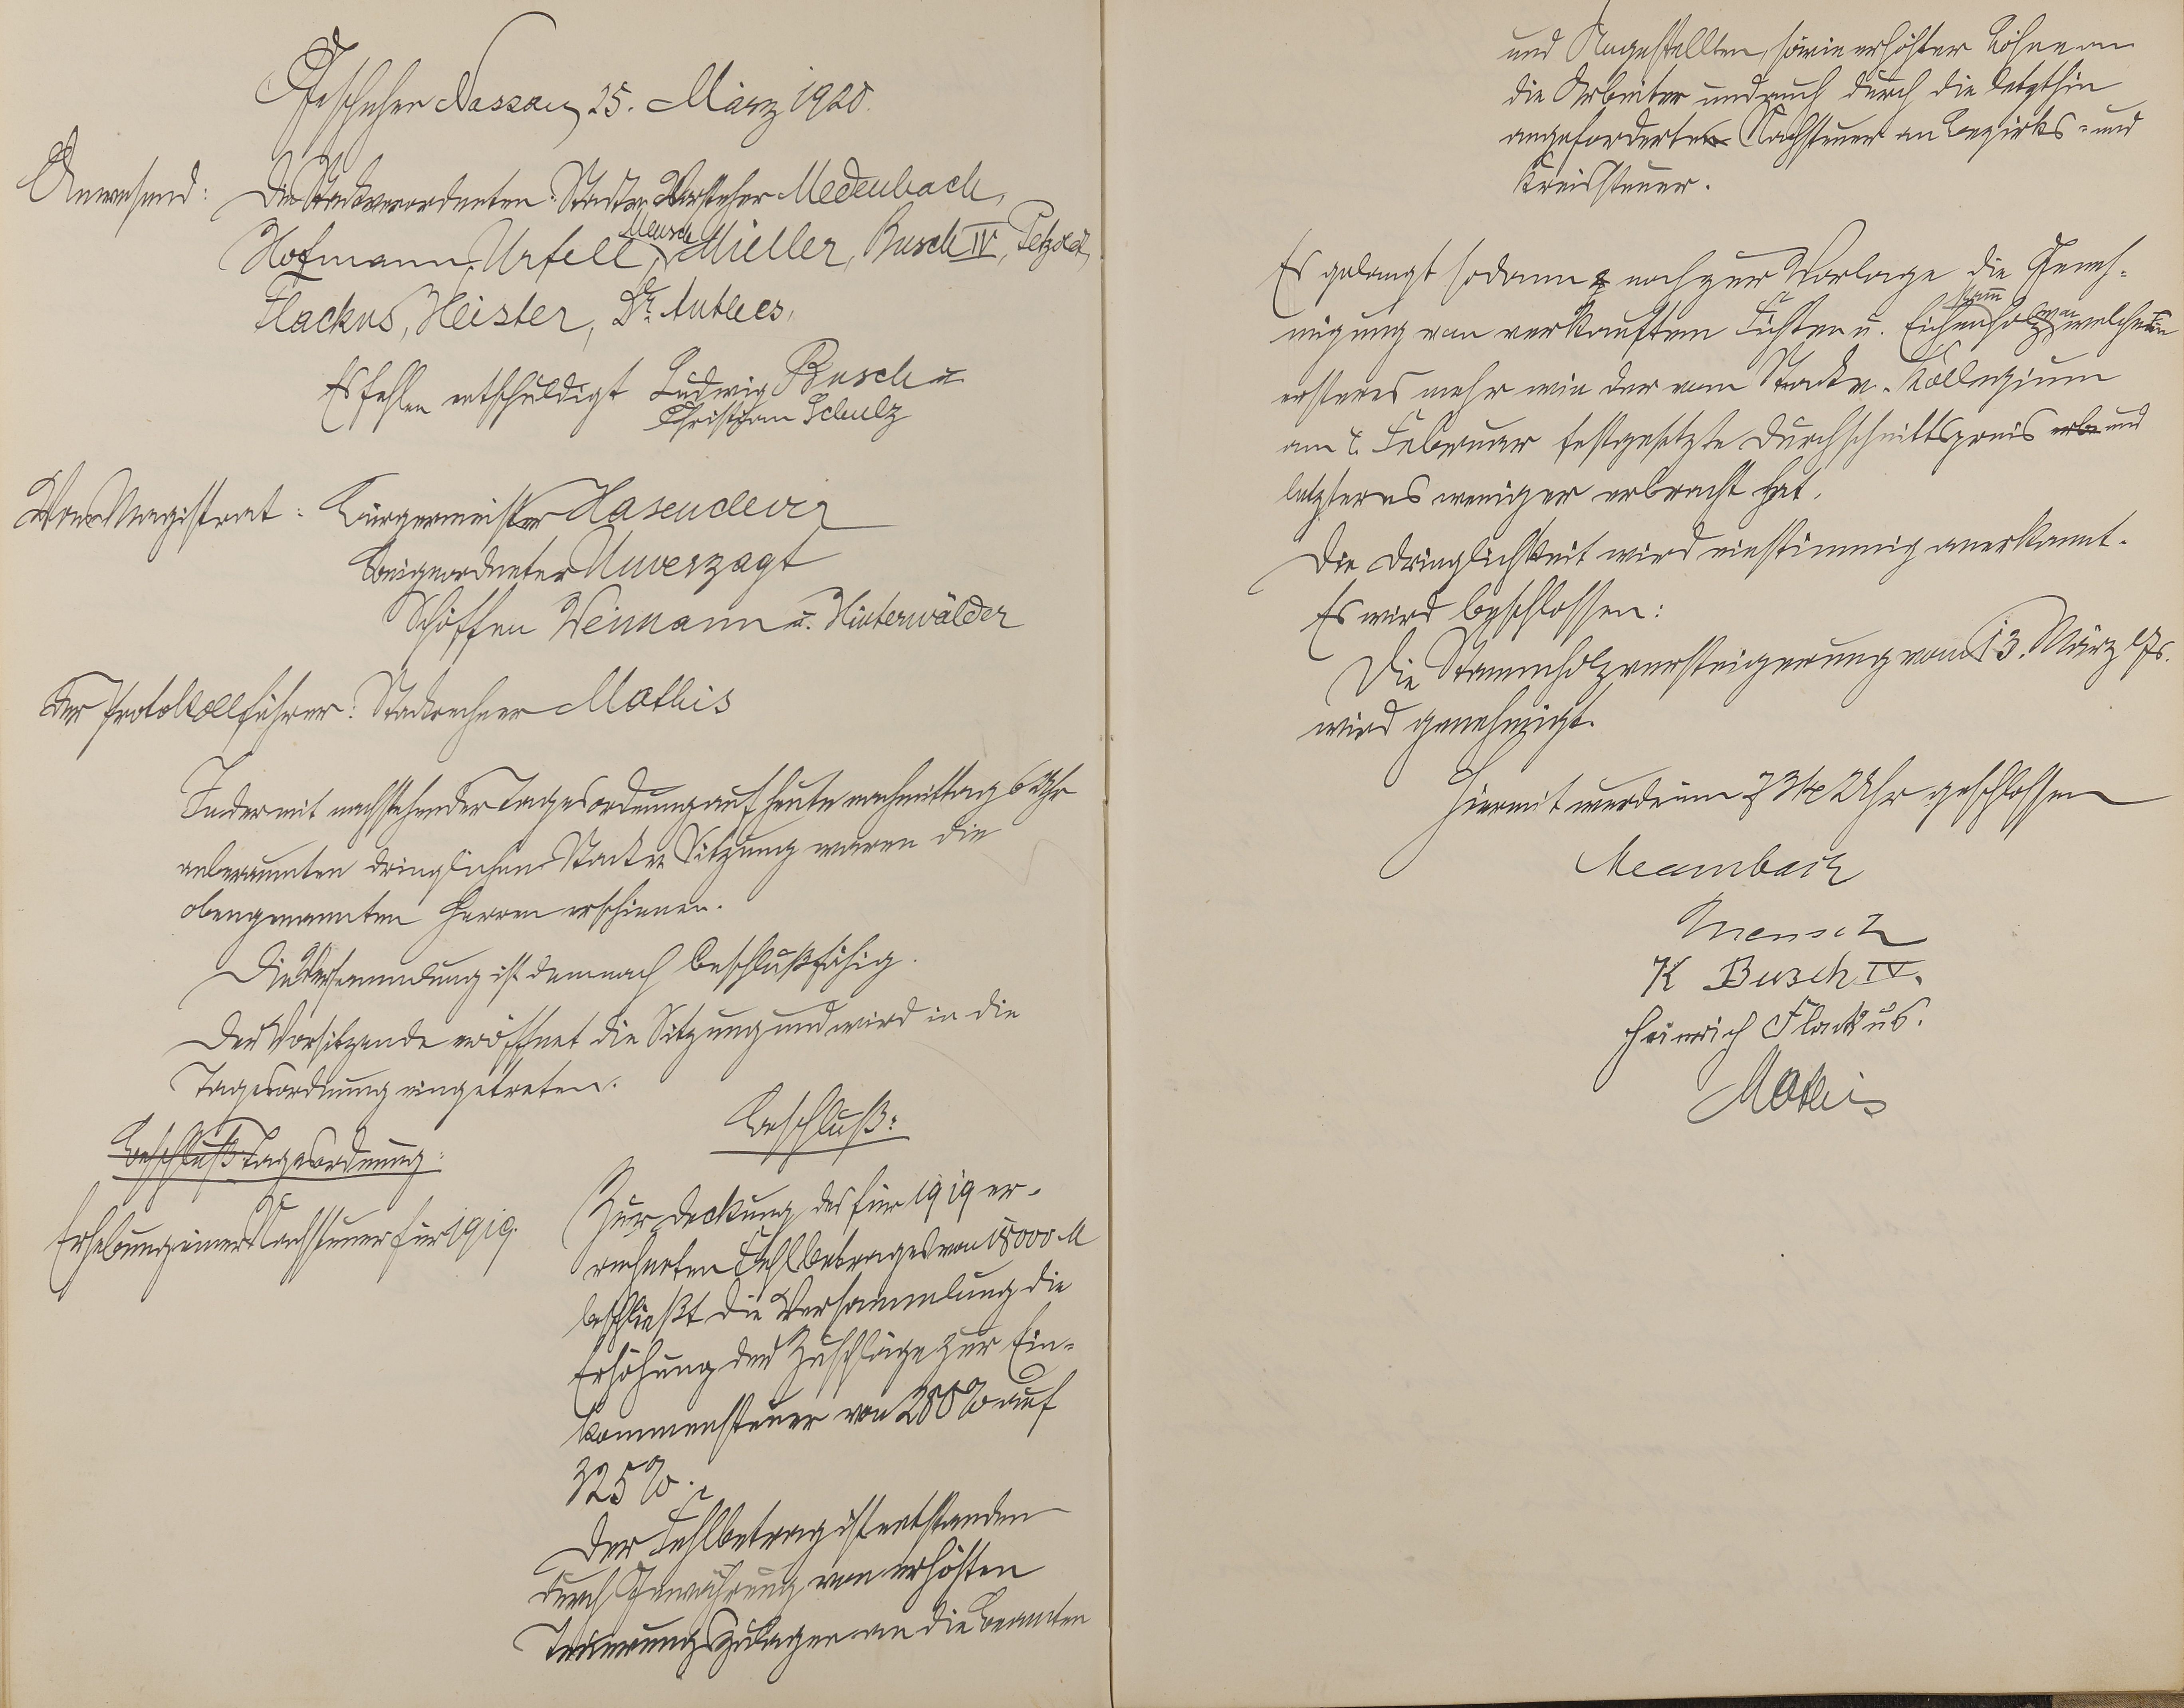 Geschehen Nassau, 25. März 1920.
Anwesend: Die Stadtverordneten: Stadtv. Vorsteher Medenbach,
Hofmann, Urfell, Mensch, Müller, Busch IV, Petzold,
Flackus, Heister, Dr. Anthes,
Es fehlen entschuldigt Ludwig Busch u.
Christian Schulz
Vom Magistrat: Bürgermeister Hasenclever
Beigeordneter Unverzagt
Schöffen Weimann u. Hinterwälder
Der Protokollführer: Stadtrechner Mathis
In der mit nachstehender Tagesordnung auf heute nachmittag 6 Uhr
anberaumten dringlichen Stadtv. Sitzung waren die
obengenannten Herren erschienen.
Die Versammlung ist demnach beschlußfähig.
Der Vorsitzende eröffnet die Sitzung und wird in die
Tagesordnung eingetreten.
Beschluß Tagesordnung:
Erhebung einer Nachsteuer für 1919.
Beschluß:
Zur Deckung des für 1919 er-
rechneten Fehlbetrages von 18000 M
beschließt die Versammlung die
Erhöhung der Zuschläge zur Ein-
kommensteuer von 280% auf
325%.
Der Fehlbetrag ist entstanden
durch Gewährung von erhöhten
Teuerungszulagen an die Beamten
und Angestellten, sowie erhöhter Löhne an
die Arbeiter und auch durch die letzthin
angeforderten Nachsteuer an Bezirks- und
Kreissteuer.
Es gelangt sodann noch zur Vorlage die Geneh-
migung von verkauftem Fichten u. Eichenstammholz, von welchem
ersteres mehr wie der vom Stadtv.-Kollegium
am Februar festgesetzte Durchschnittspreis erbr und
letzteres weniger erbracht hat.
Die Dringlichkeit wird einstimmig anerkannt.
Es wird beschlossen:
Die Stammholzversteigerung vom 13. März ds. Js.
wird genehmigt.
Hiermit wurde um 7 3/4 Uhr geschlossen
Medenbach
Mensch
K Busch IV.
Heinrich Flackus.
Mathis